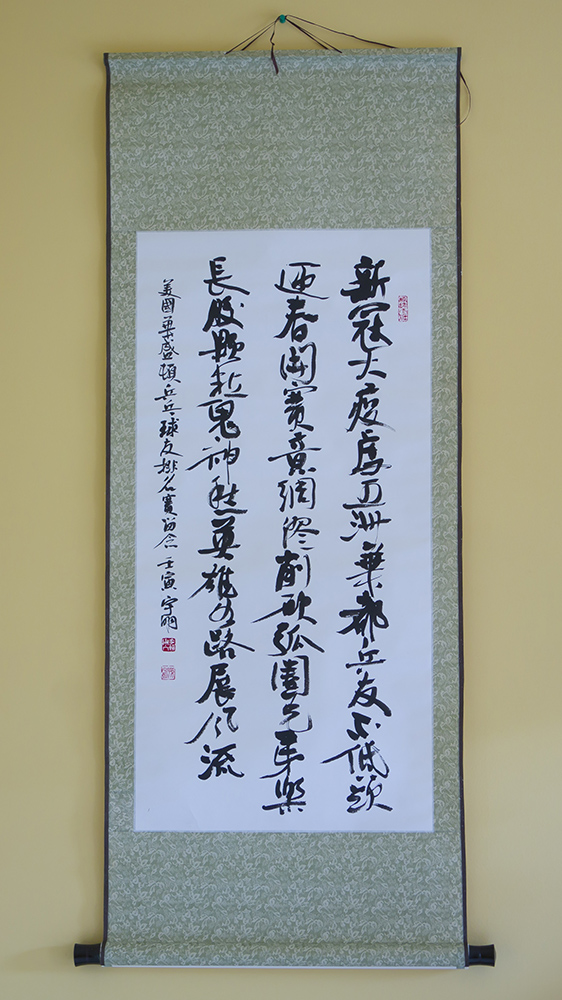 新冠大疫虐五洲華都乒友不低頭
迎春開賽綢繆削砍弧圈樂
長膠顆粒鬼神愁英雄路展風流
美國華盛頓乒乓球友排名賽留念 壬寅 宇明